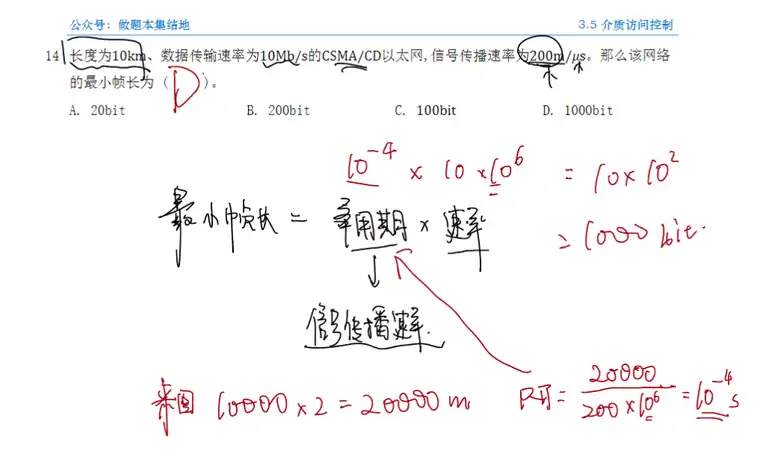 公众号：做题本集结地 3.5 介质访问控制
14 长度为10km、数据传输速率为10Mb/s的CSMA/CD以太网,信号传播速率为200m/μs。那么该网络
的最小帧长为（ D ）。
A. 20bit B. 200bit C. 100bit D. 1000bit
10⁻⁴ × 10 × 10⁶ = 10×10²
最小帧长 = 争用期 × 速率 = 1000 bit.
↓
信号传播速率.
来回 10000×2=20000 m 时= 20000/200×10⁶ = 10⁻⁴ s